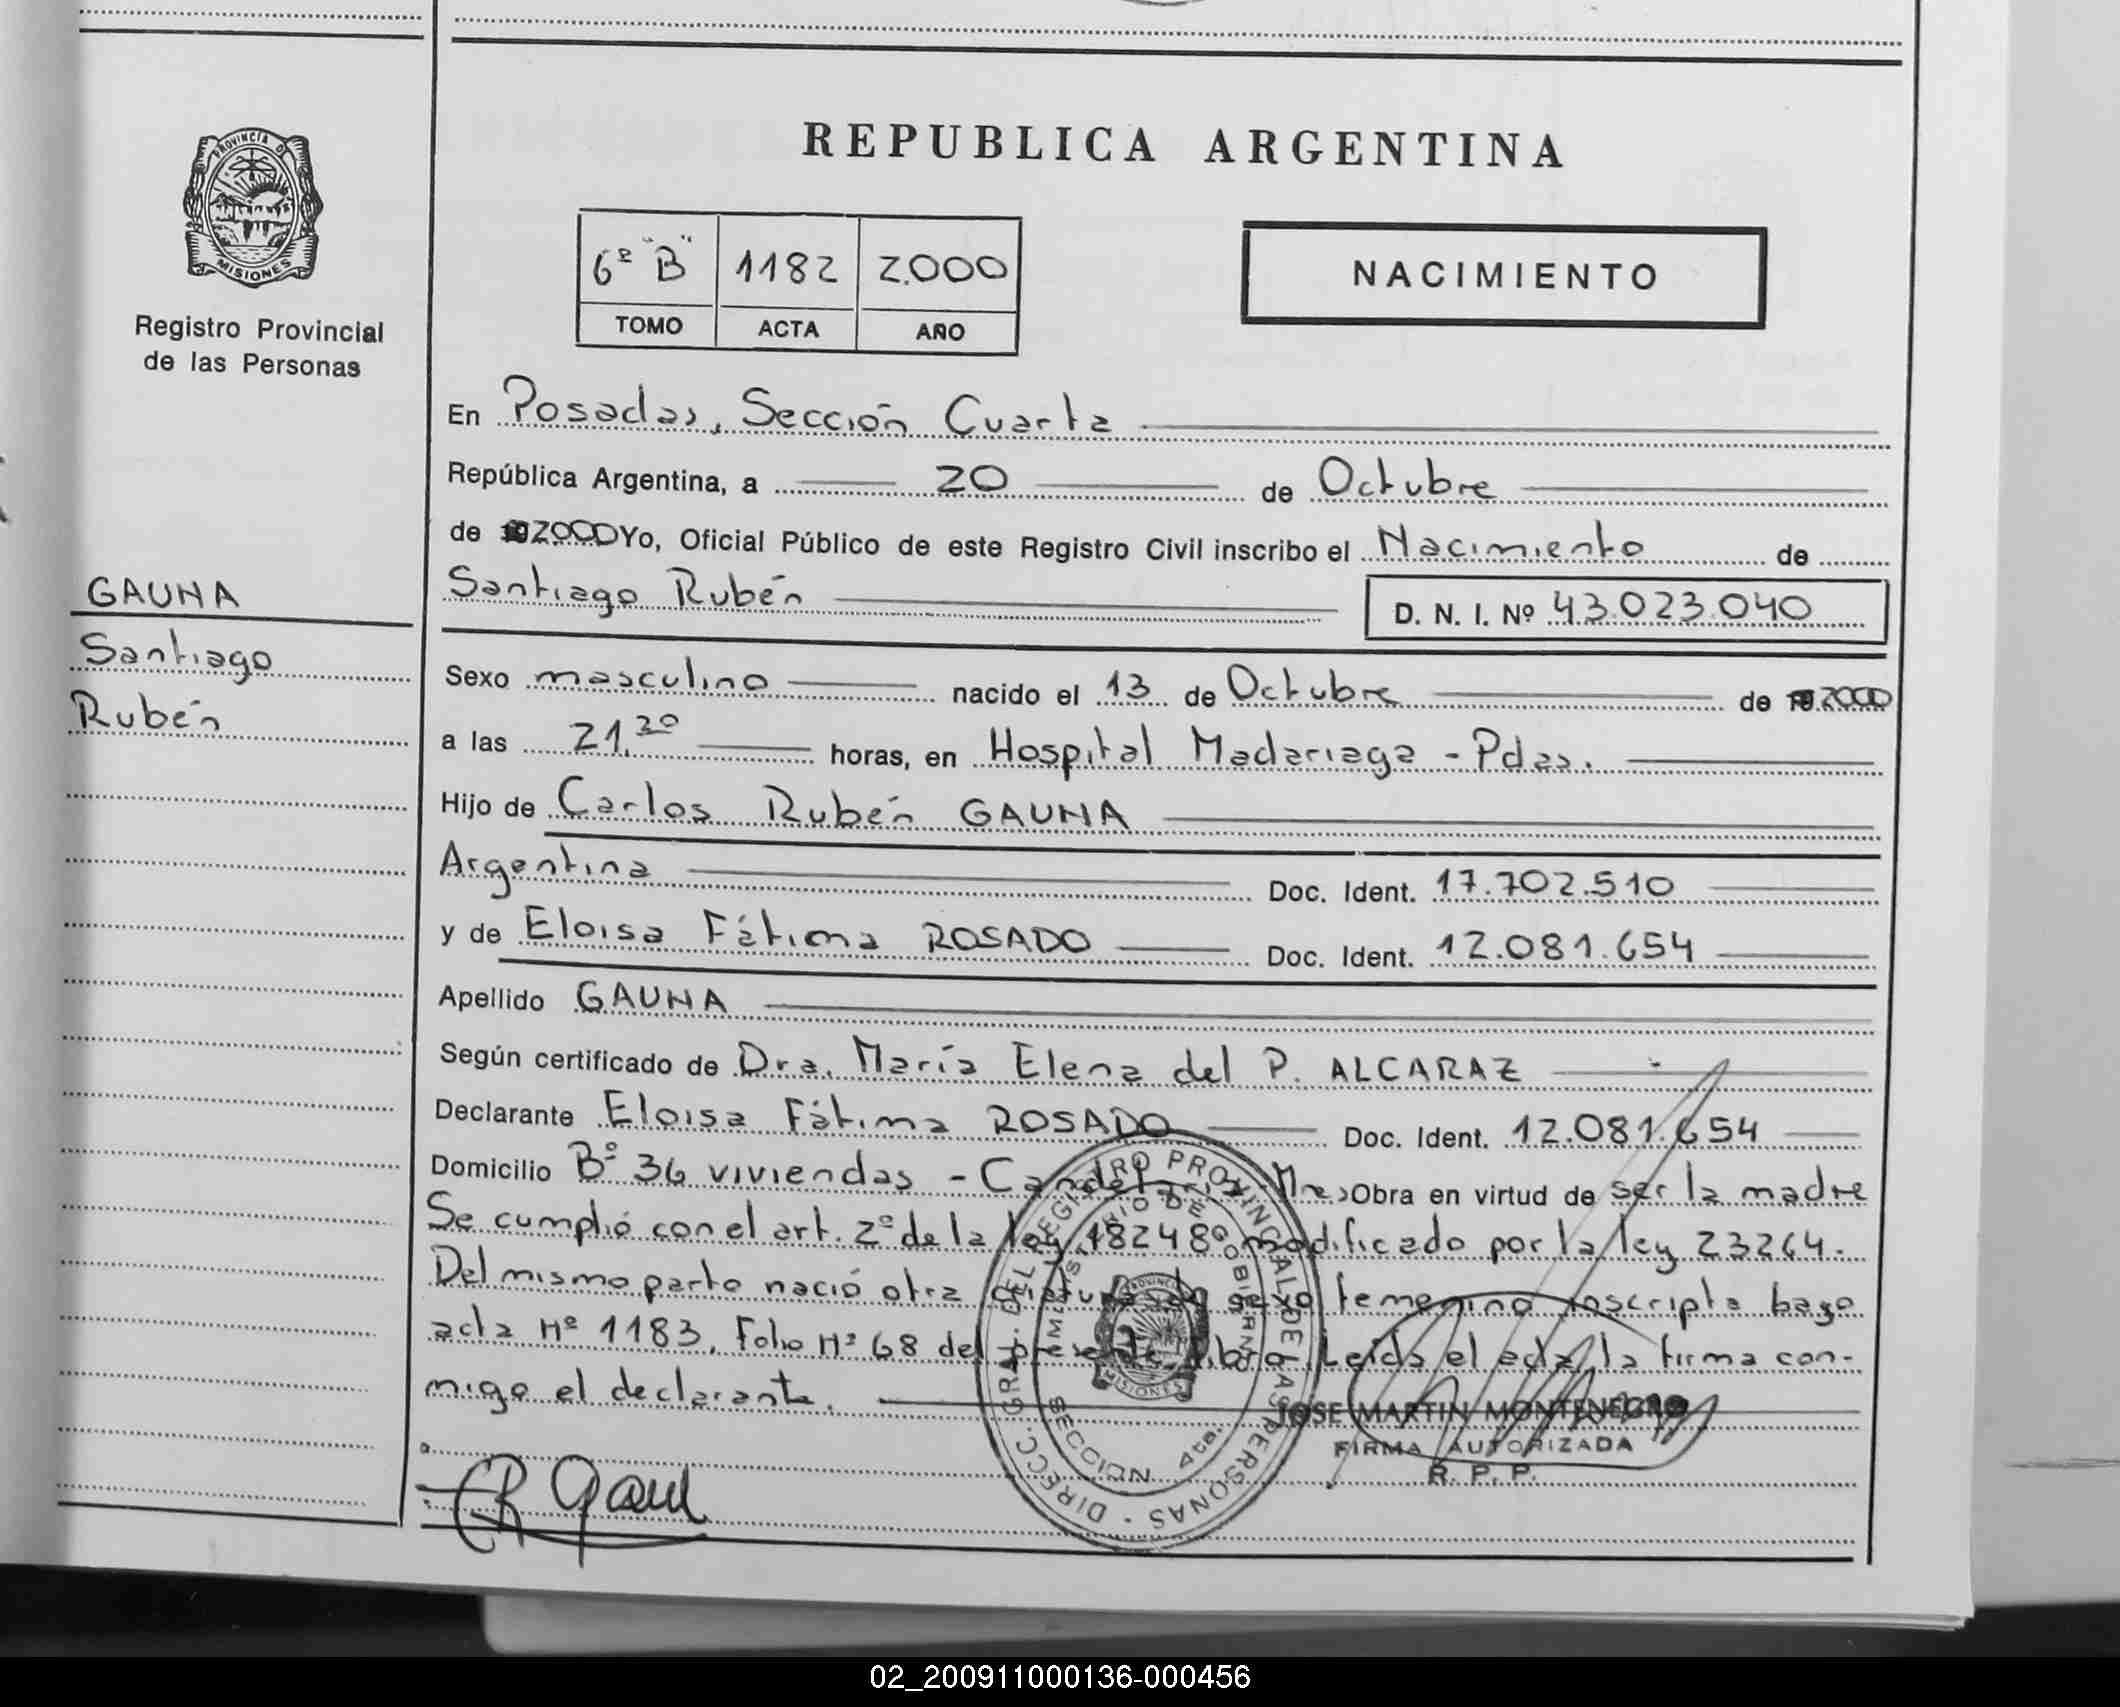 PROVINCIA DE
MISIONES
Registro Provincial
de las Personas
GAUNA
Santiago
Rubén
REPUBLICA ARGENTINA
6º "B" 1182 2.000
TOMO ACTA AÑO
NACIMIENTO
En Posadas, Sección Cuarta
República Argentina, a 20 de Octubre
de 2000 Yo, Oficial Público de este Registro Civil inscribo el Nacimiento de
Santiago Rubén D. N. I. Nº 43.023.040
Sexo masculino nacido el 13 de Octubre de 2000
a las 21,30 horas, en Hospital Madariaga - Pdas.
Hijo de Carlos Rubén GAUNA
Argentina Doc. Ident. 17.702.510
y de Eloisa Fátima ROSADO Doc. Ident. 12.081.654
Apellido GAUNA
Según certificado de Dra. María Elena del P. ALCARAZ
Declarante Eloisa Fátima ROSADO Doc. Ident. 12.081.654
Domicilio Bº 36 viviendas - Candelaria - Mnes. Obra en virtud de ser la madre
Se cumplió con el art. 2º de la ley 18248 modificado por la ley 23264.
Del mismo parto nació otra criatura de sexo femenino inscripta bajo
acta Nº 1183, Folio Nº 68 del presente libro. Leída el acta, la firma con-
migo el declarante.
DIRECC. GRAL. DEL REGISTRO PROVINCIAL DE LAS PERSONAS
MINISTERIO DE GOBIERNO
PROVINCIA
MISIONES
SECCION 4ta.
JOSE MARTIN MONTENEGRO
FIRMA AUTORIZADA
R. P. P.
02_200911000136-000456